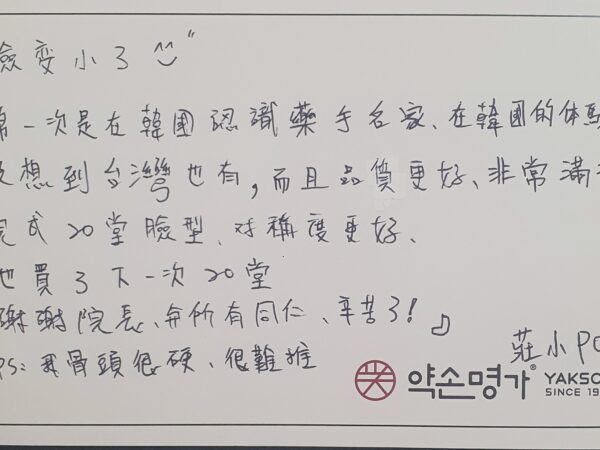 臉变小了
一次是在韓國認識藥手名家、在韓國的体驗
想到台灣也有,而且品質更好、非常滿
完式20堂臉型、对稱度更好、
也買了下一次20堂
謝謝院長、弁所有同仁、辛苦了!
PS:我骨頭很硬、很難推
莊小PO
약손명가® YAKSO
SINCE 19